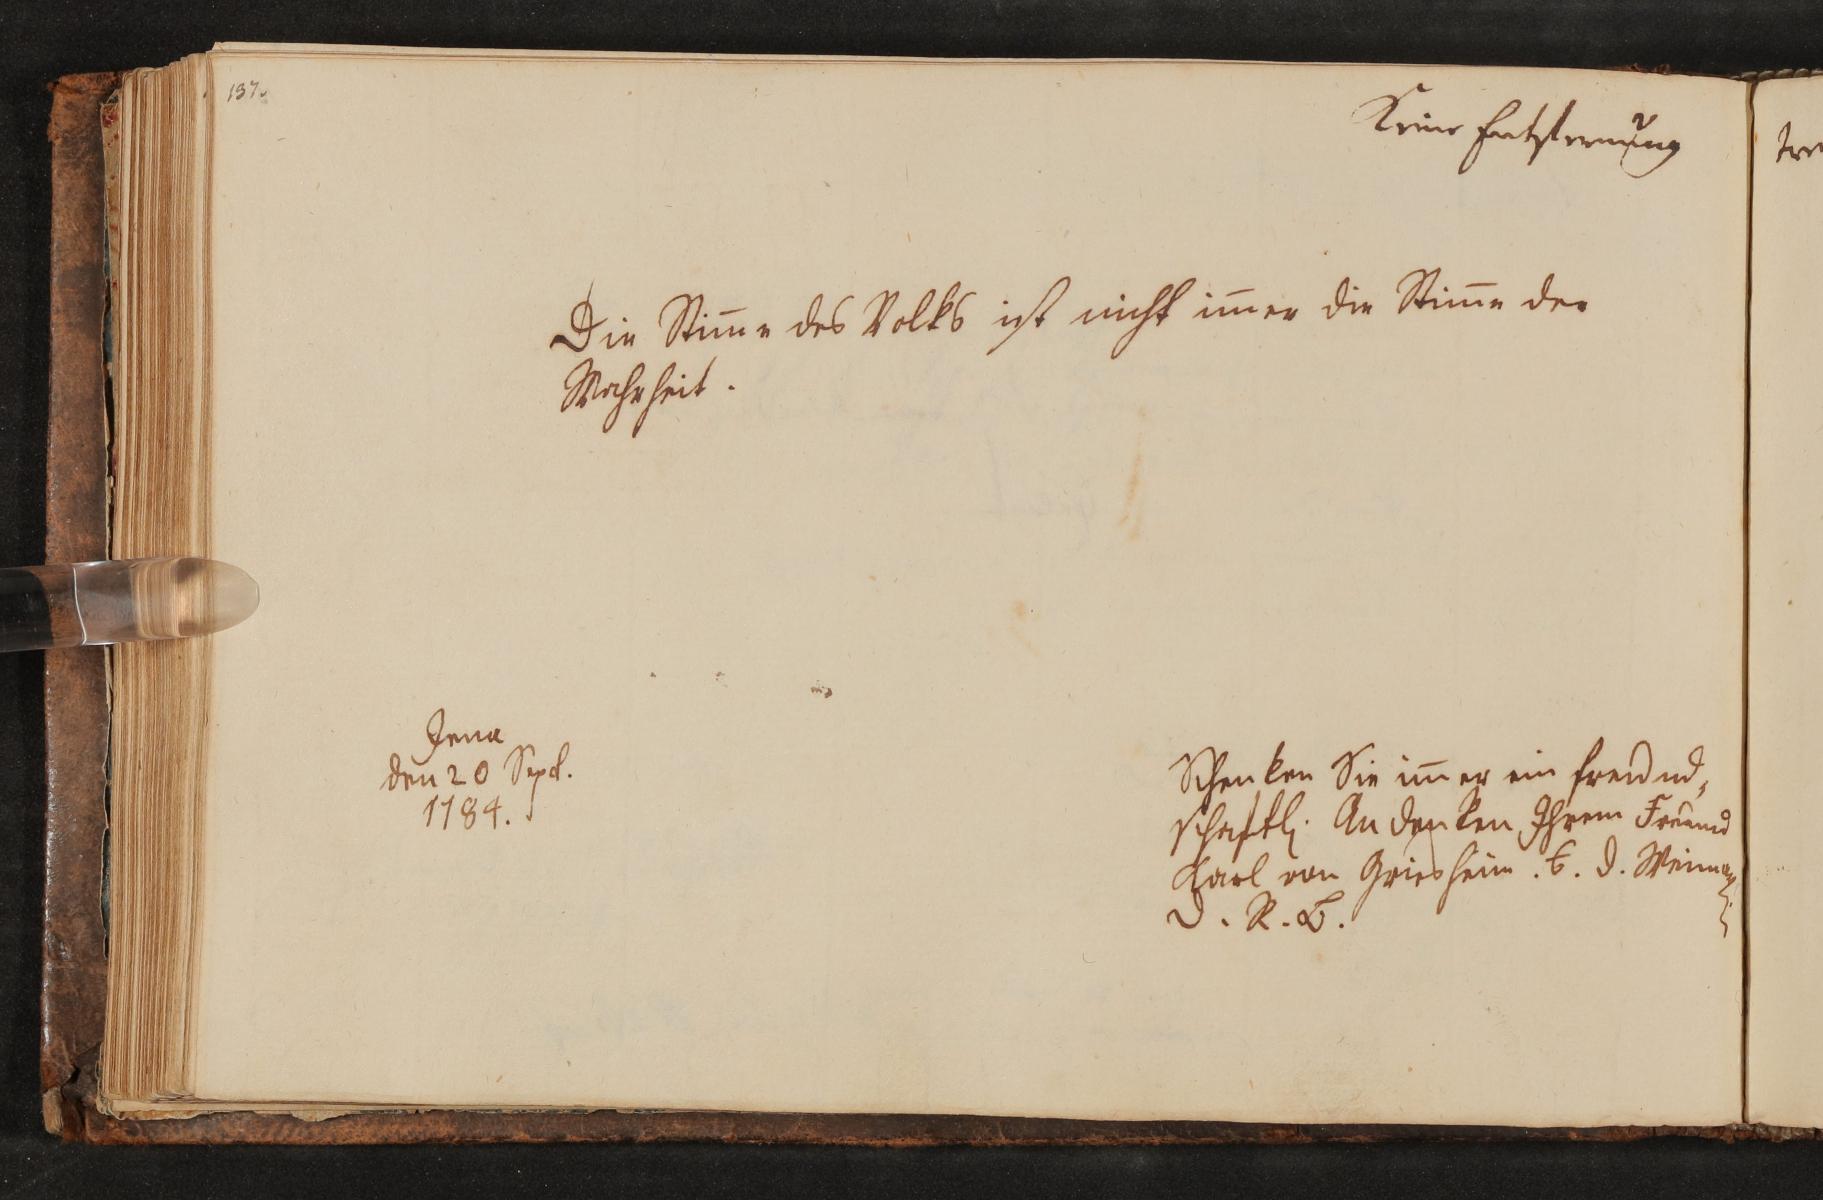 137.
Keine Entfernung
Die Stim̄e des Volks ist nicht im̄er die Stim̄e der
Wahrheit.
Jena
den 20 Sept.
1784.
Schenken Sie im̄er ein freund¸
schaftl. Andenken Ihrem Freund
Karl von Griesheim. B. d. Weimar
D. R. B.